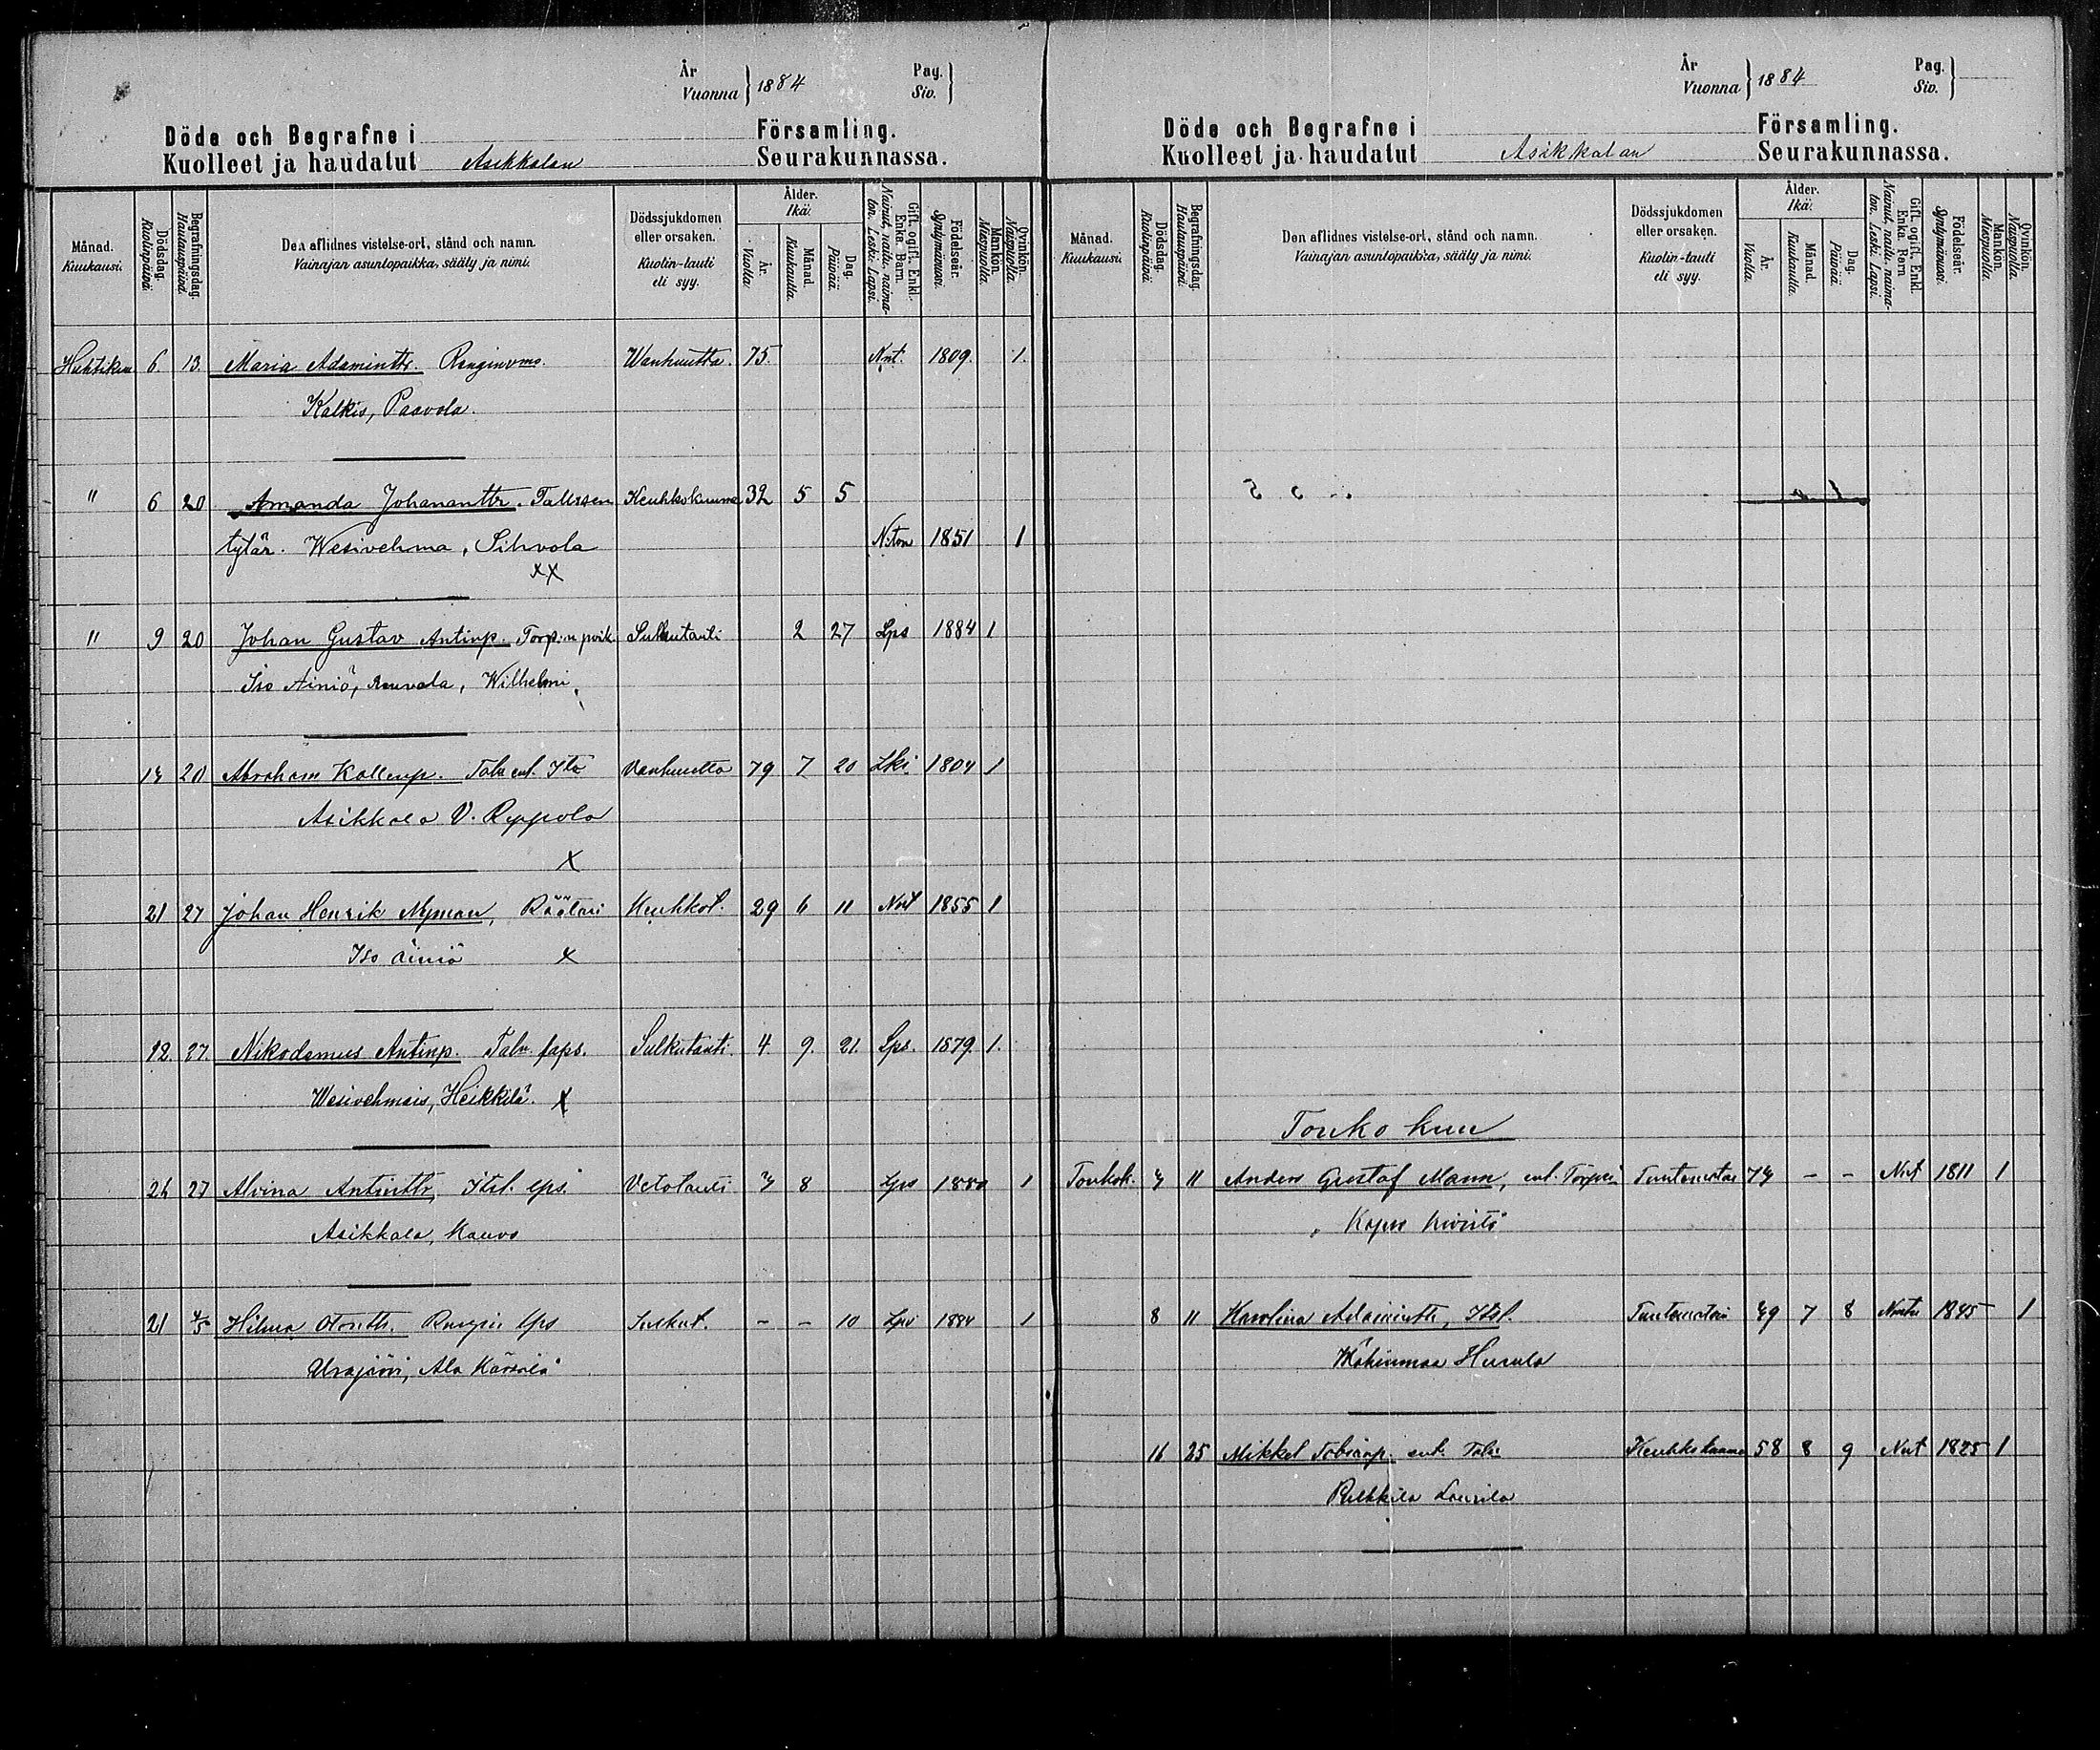 År
Vuonna } 1884
Pag.
Siv. }
Döde och Begrafne i Församling.
Kuolleet ja haudatut Asikkalan Seurakunnassa.
Månad. Kuukausi.
Dödsdag. Kuolinpäivä.
Begrafningsdag. Hautauspäivä.
Den aflidnes vistelse-ort, stånd och namn.
Vainajan asuntopaikka, sääty ja nimi.
Dödssjukdomen eller orsaken.
Kuolin-tauti eli syy.
Ålder. Ikä.
År. Vuotta.
Månad. Kuukautta.
Dag. Päivää.
Gift, ogift, Enkl. Enka. Barn.
Nainut, naitu, naimaton. Leski. Lapsi.
Födelseår. Syntymävuosi.
Mankön. Miespuolia.
Qvinkön. Naispuolia.
Huhtikuu 6. 13. Maria Adamintr. Wanhuutta. 75. Nnt. 1809. 1.
Kalkis, Paavola.
" 6 20 Amanda Johananttr. Tallusen Keuhkokuume 32 5 5
tytär. Wesivehma, Sihvola N:ton 1851 1
XX
" 9 20 Johan Gustav Antinp. Torp:n poik Sulkutauti 2 27 Lps 1884 1
Iso Äiniö, Wilhelmi
14 20 Abraham Kallenp. Tal. ent. Itä Vanhuutta 79 7 20 Lki 1804 1
Asikkala V. Reppola
X
21 27 Johan Henrik Nyman, Räätäri Keuhkot. 29 6 11 Nnt 1855 1
Iso äiniö X
22. 27. Nikodemus Antinp. Tal. laps. Sulkutauti. 4 9. 21. Lps. 1879. 1.
Wesivehmais, Heikkilä. X
26 27 Alvina Antinttr, Itsl. lps. Vetotauti 3 8 Lps 1880 1
Asikkala, Kauvo
21 4/5 Hilma Otontr. Rengin lps - - 10 1884 1
Urajärvi, Ala Kärkölä
År
Vuonna } 1884
Pag.
Siv. }
Döde och Begrafne i Församling.
Kuolleet ja haudatut Asikkalan Seurakunnassa.
Månad. Kuukausi.
Dödsdag. Kuolinpäivä.
Begrafningsdag. Hautauspäivä.
Den aflidnes vistelse-ort, stånd och namn.
Vainajan asuntopaikka, sääty ja nimi.
Dödssjukdomen eller orsaken.
Kuolin-tauti eli syy.
Ålder. Ikä.
År. Vuotta.
Månad. Kuukautta.
Dag. Päivää.
Gift, ogift, Enkl. Enka. Barn.
Nainut, naitu, naimaton. Leski. Lapsi.
Födelseår. Syntymävuosi.
Mankön. Miespuolia.
Qvinkön. Naispuolia.
Toukokuu
Toukok. 11 Anders Gustaf Mann, ent. Torpari Tuntematon - - Nnt 1811 1
Kivistö
8 11 Karolina Adamintr, Itsl. Tuntematoin 7 8 1
Hurula
16 25 Mikkel Tobianp. ent. Tal. Keuhkokuume 58 8 9 Nnt 1825 1
Pulkkila Laurila